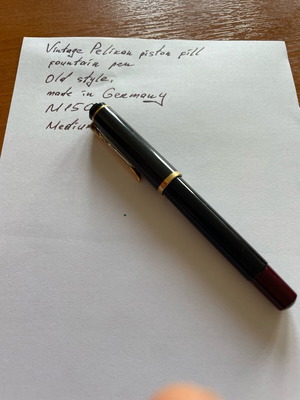 Vintage Pelikan piston fill
fountain pen
Old style.
made in Germany
M150
Medium